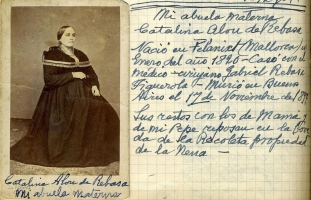 Mi abuela materna
Catalina Alou de Rebasa
Nació en Felanix (Mallorca) en
Enero del año 1840 - Casó con el
médico-cirujano Gabriel Rebasa
Figuerola - Murió en Buenos
Aires el 17 de Noviembre de 18
Sus restos con los de Mamá y
de mi Pepe reposan en la bóve
da de la Recoleta propiedad
de la Nena -
Catalina Alou de Rebasa
Mi abuela materna